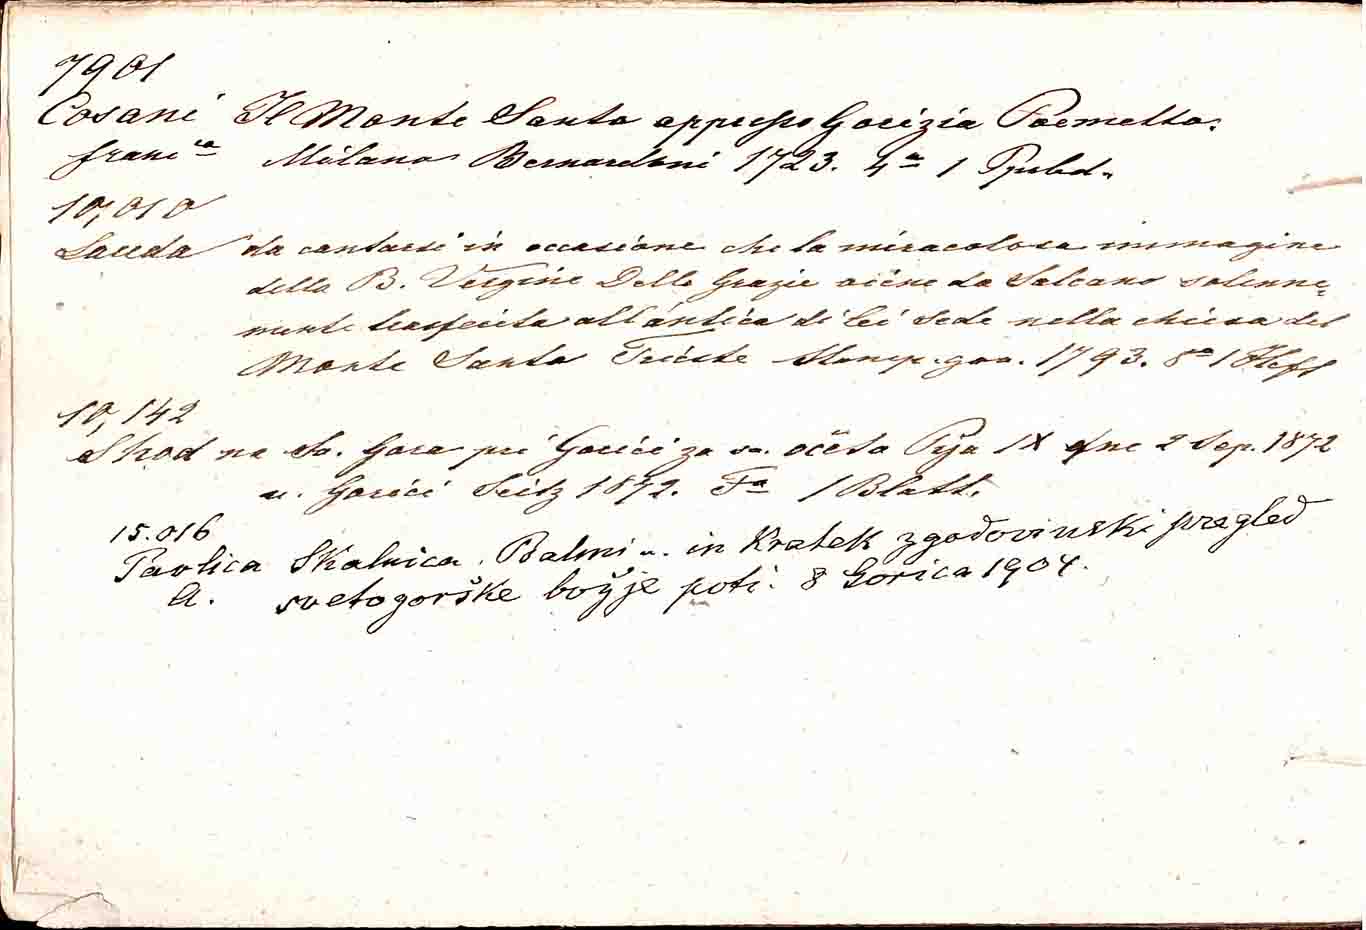 7901
Cosani Il Monte Santo appresso Gorizia Poemetto.
franc.ca Milano Bernardoni 1723. 4° 1 Ppbd.
10,010
Lauda da cantarsi in occasione che la miracolosa immagine
della B. Vergine Delle Grazie viene da Salcano solenne-
mente trasferita all'antica di lei sede nella chiesa del
Monte Santo Trieste Stamp. gov. 1793. 8° 1 Heft
10,142
Shod na Sv. Gora pri Gorici za sv. očeta Pija IX dne 2 Sep. 1872
u. Gorici Seitz 1872. F° 1 Blatt.
15.016
Pavlica Skalnica. in Kratek zgodovinski pregled
A. svetogorške božje poti. 8 Gorica 1904.